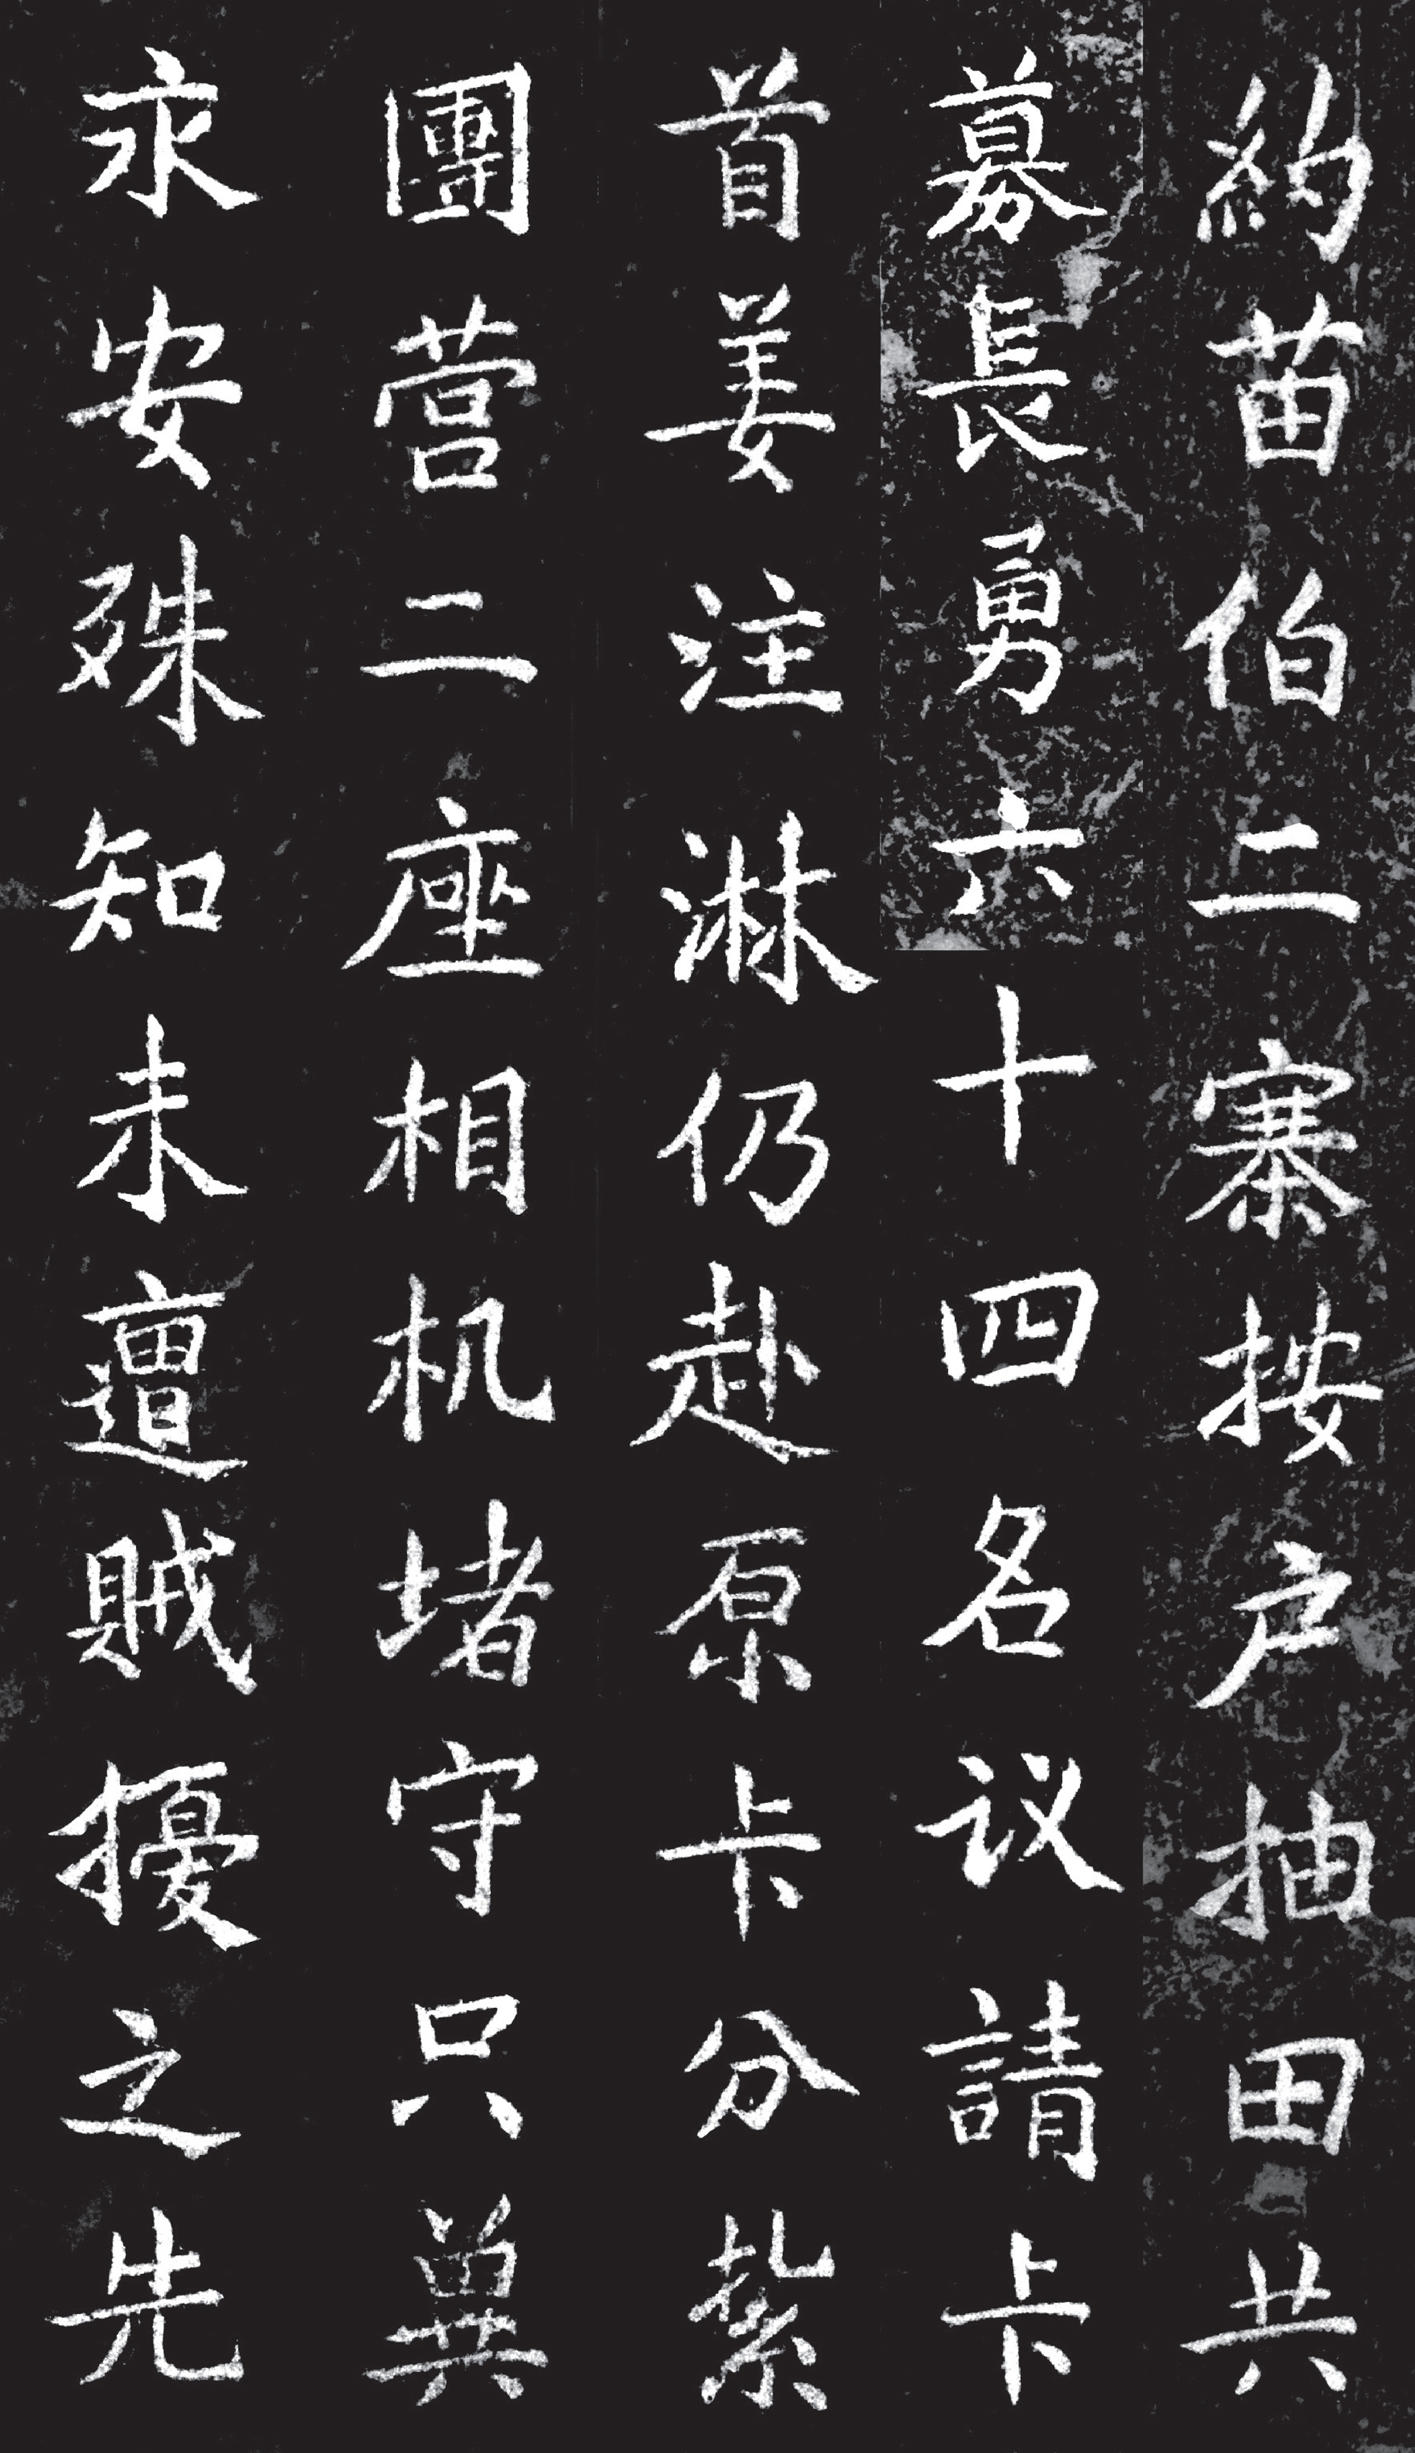 約苗伯二寨按户抽田共
募長勇六十四名议請卡
首姜注淋仍赴原卡分紮
團营二座相机堵守只兾
永安殊知未遭賊擾之先